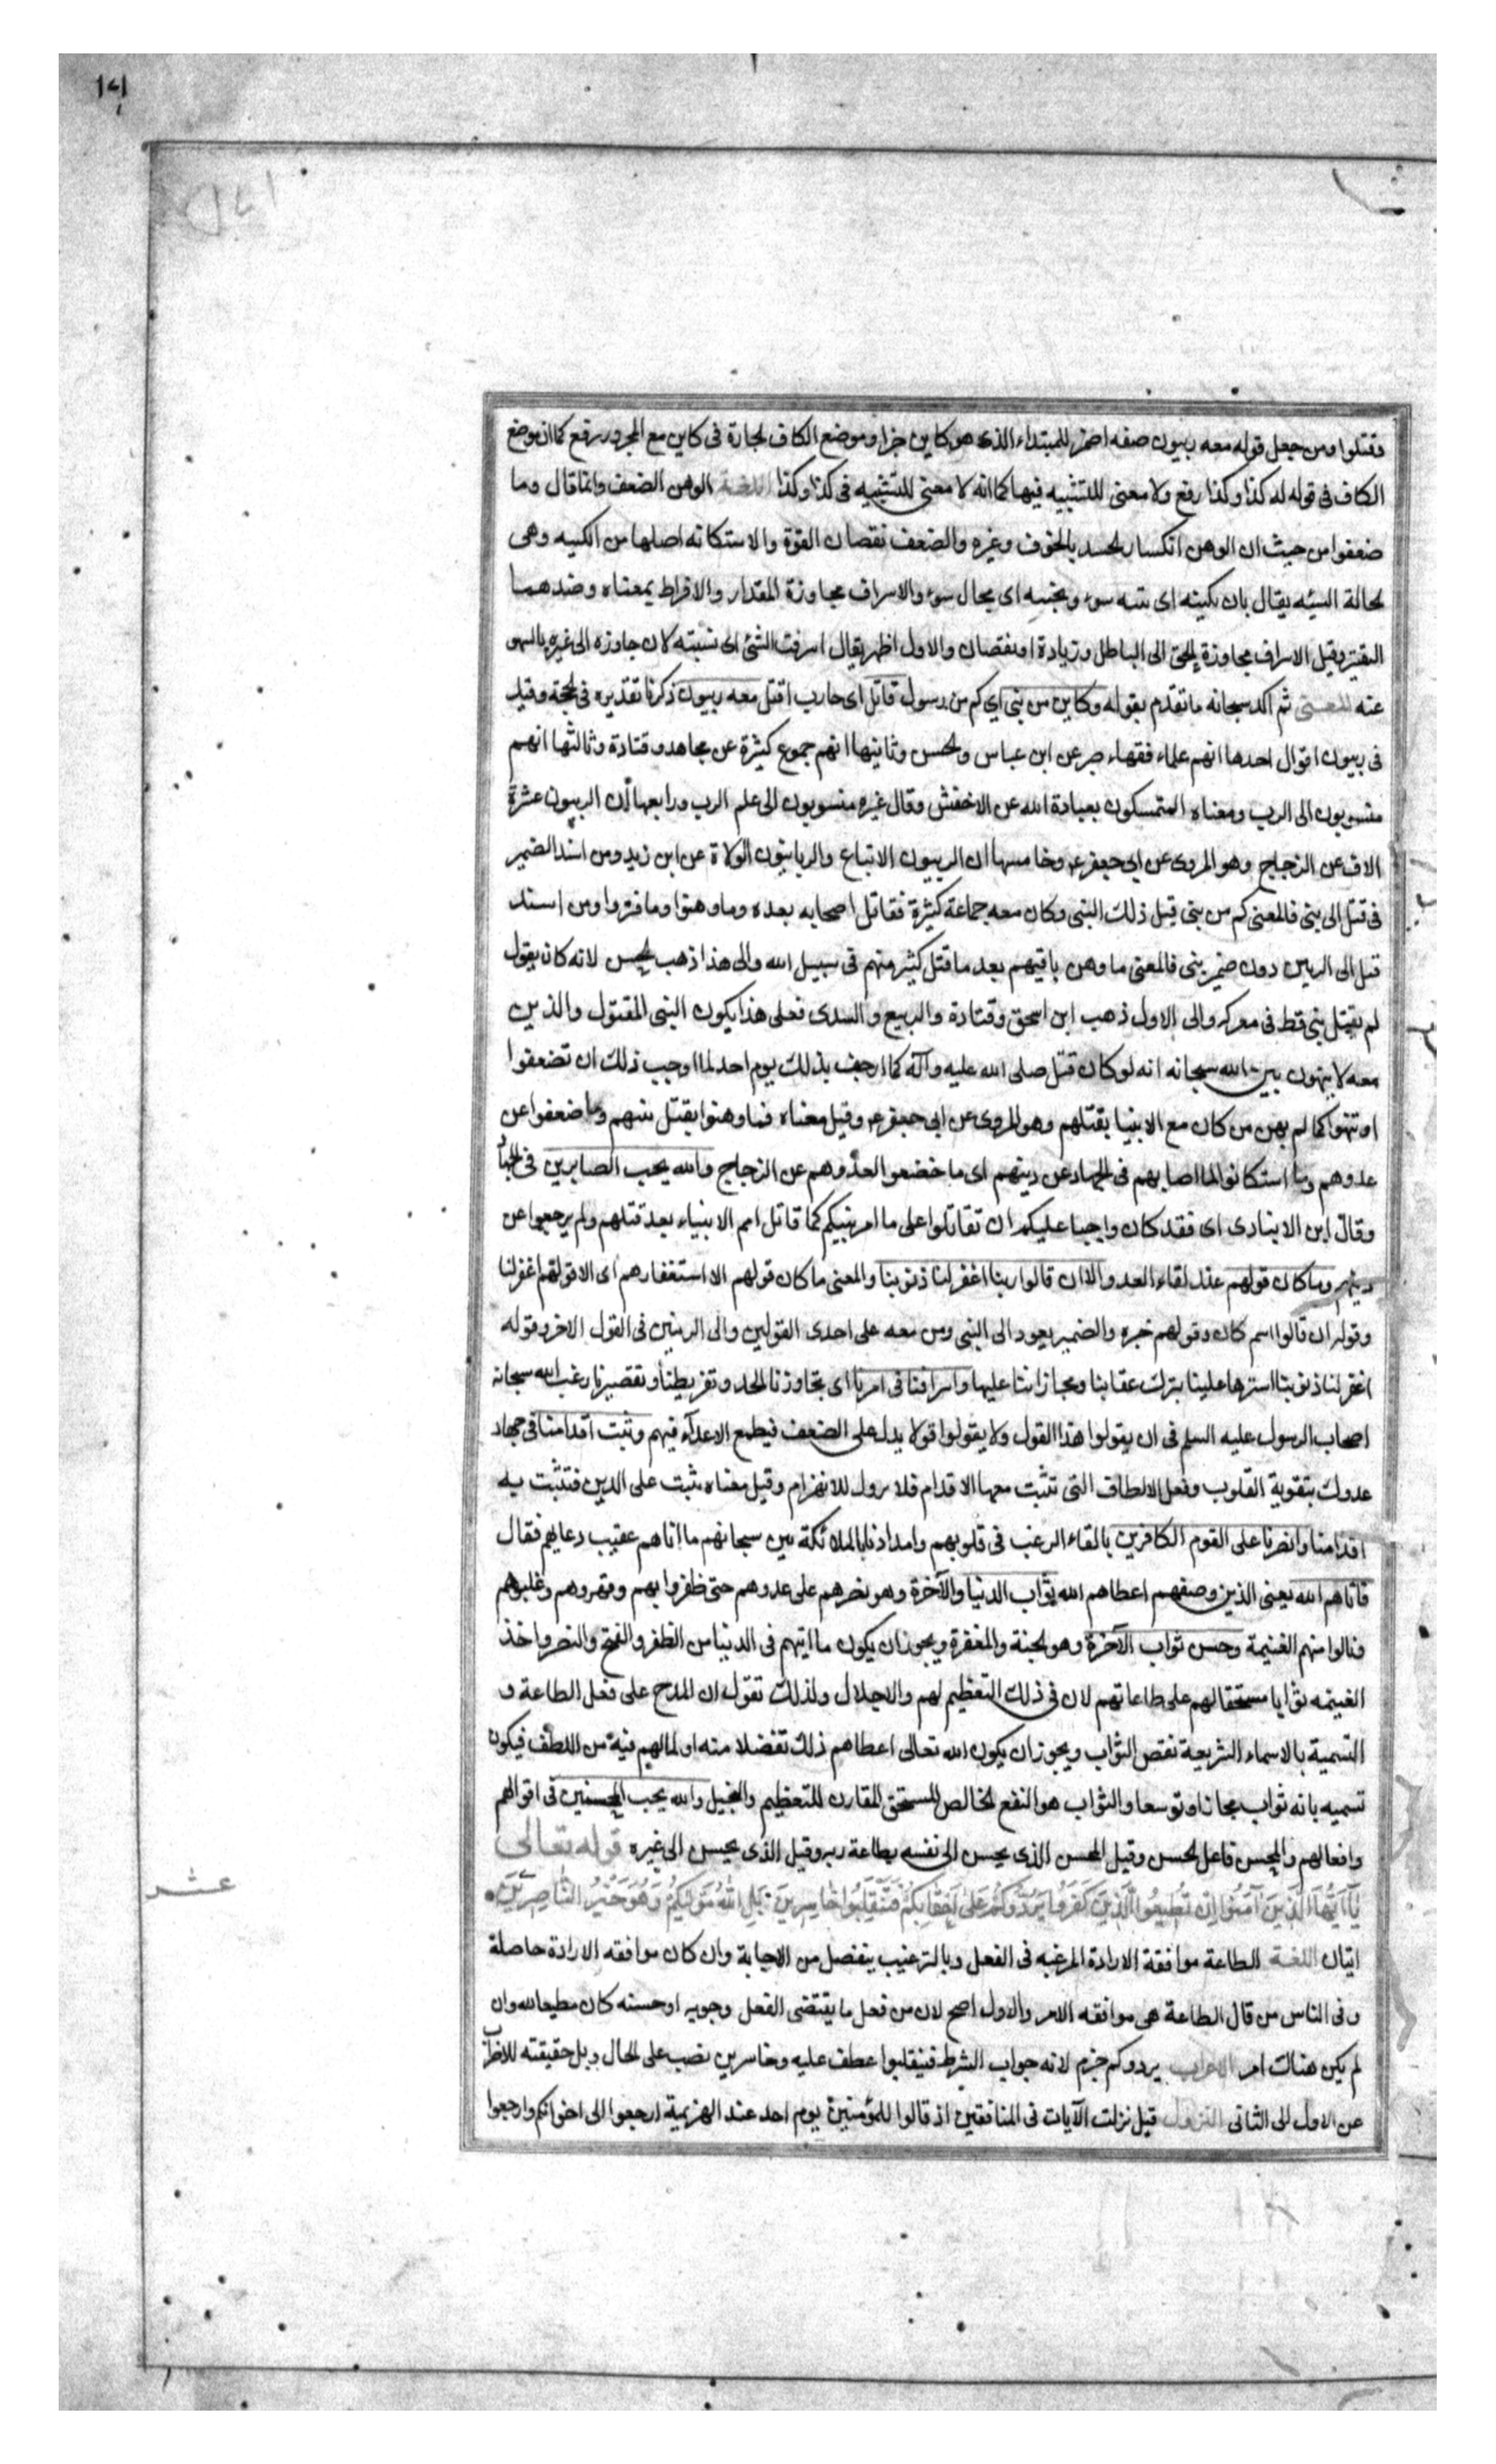 فقتلوا ومن جعل قوله معه ربيون صفه اضمر للمبتداء الذى هو كاين خبرا وموضع الكاف الجارة فى كاين مع المجرور رفع كما ان موضع
الكاف فى قوله له كذا وكذا رفع ولا معنى للتشبيه فيها كما انه لا معنى للتشبيه فى كذا وكذا اللغـة الوهن الضعف وانما قال وما
ضعفوا من حيث ان الوهن انكسار الجسد بالخوف وغيره والضعف نقصان القوة والاستكانه اصلها من الكينه وهى
الحالة السيئه يقال بات بكينه اى بنيه سوء وبجنبه اى بحال سوء والاسراف مجاوزة المقدار والافراط بمعناه وضدهما
التقتير وقيل الاسراف مجاوزة الحق الى الباطل وزيادة او نقصان والاول اظهر يقال اسرفت الشئ اى نسيته لان جاوزه الى غيره بالسهو
عنه المعـنى ثم اكد سبحانه ما تقدم بقوله وكاين من نبى اي كم من رسول قاتل اى حارب او قتل معه ربيون ذكرنا تقديره فى الحجة وقيل
فى ربيون اقوال احدها انهم علماء فقهاء صبر عن ابن عباس والحسن وثانيها انهم جموع كثيرة عن مجاهد وقتادة وثالثها انهم
منسوبون الى الرب ومعناه المتمسكون بعبادة الله عن الاخفش وقال غيره منسوبون الى علم الرب ورابعها أن الربيون عشرة
الاف عن الزجاج وهو المروى عن ابى جعفر ع وخامسها ان الربيون الاتباع والربانيون الولاة عن ابن زيد ومن اسند الضمير
فى قتل الى نبى فالمعنى كم من نبى قتل ذلك النبى وكان معه جماعة كثيرة فقاتل اصحابه بعده وما وهنوا وما فتروا ومن اسند
قتل الى الربيين دون ضمير نبى فالمعنى ما وهن باقيهم بعد ما قتل كثير منهم فى سبيل الله والى هذا ذهب الحسن لانه كان يقول
لم يقتل نبى قط فى معركه والى الاول ذهب ابن اسحق وقتادة والربيع والسدى فعلى هذا يكون النبى المقتول والذين
معه لا يهنون بين الله سبحانه انه لو كان قتل صلى الله عليه وآله كما ارجف بذلك يوم احد لما اوجب ذلك ان تضعفوا
او تهنوا كما لم يهن من كان مع الانبيا بقتلهم وهو المروى عن ابى جعفر ع وقيل معناه فما وهنوا بقتل نبيهم وما ضعفوا عن
عدوهم وما استكانوا لما اصابهم فى الجهاد عن دينهم اى ما خضعوا لعدوهم عن الزجاج والله يحب الصابرين فى الجهاد
وقال ابن الانبارى اى فقد كان واجبا عليكم ان تقاتلوا على ما امر نبيكم كما قاتل امم الانبياء بعد قتلهم ولم يرجعوا عن
دينهم وما كان قولهم عند لقاء العدو الا ان قالوا ربنا اغفر لنا ذنوبنا والمعنى ما كان قولهم الا استغفارهم اى الا قولهم اغفر لنا
وقوله ان قالوا اسم كان وقولهم خبره والضمير يعود الى النبى ومن معه على احدى القولين والى الربيين فى القول الاخر وقوله
اغفر لنا ذنوبنا استرها علينا بترك عقابنا ومجازاتنا عليها واسرافنا فى امرنا اى تجاوزنا الحد وتفريطنا وتقصيرنا رغب الله سبحانه
اصحاب الرسول عليه السلم فى ان يقولوا هذا القول ولا يقولوا قولا يدل على الضعف فيطمع الاعدآء فيهم وثبت اقدامنا فى جهاد
عدوك بتقوية القلوب وفعل الالطاف التى تثبت معها الاقدام فلا يزول للانهزام وقيل معناه ثبت على الدين فتثبت به
اقدامنا وانصرنا على القوم الكافرين بالقاء الرعب فى قلوبهم وامدادنا بالملائكة بين سبحانهم ما اتاهم عقيب دعايهم فقال
فاتاهم الله يعنى الذين وصفهم اعطاهم الله ثواب الدنيا والآخرة وهو نصرهم على عدوهم حتى ظفروا بهم وقهروهم وغلبوهم
ونالوا منهم الغنيمة وحسن ثواب الآخرة وهو الجنة والمغفرة ويجوز ان يكون ما اتيهم فى الدنيا من الظفر والفتح والنصر واخذ
الغنيمه ثوابا مستحقا لهم على طاعاتهم لان فى ذلك التعظيم لهم والاجلال ولذلك تقول ان المدح على فعل الطاعة و
التسمية بالاسماء الشريعة نقص الثواب ويجوز ان يكون الله تعالى اعطاهم ذلك تفضلا منه او لما لهم فيه من اللطف فيكون
تسميه بانه ثواب مجازا وتوسعا والثواب هو النفع الخالص المستحق المقارن للتعظيم والتبجيل والله يحب المحسنين فى اقوالهم
وافعالهم والمحسن فاعل الحسن وقيل المحسن الذى يحسن الى نفسه بطاعة ربه وقيل الذى يحسن الى غيره قوله تعالى
يَآ اَيُّهَا الَّذينَ اٰمَنُوا اِن تُطيعُوا الَّذينَ كَفَرُوا يَرُدُّوكُمْ عَلٰى اَعْقَابِكُمْ فَتَنْقَلِبُوا خَاسِرينَ بَلِ اللّٰهُ مَوْلٰيكُمْ وَهُوَ خَيْرُ النَّاصِرينَ
عشر
ايتان اللغـة الطاعة موافقة الارادة المرغبه فى الفعل وبالترغيب ينفصل من الاجابة وان كان موافقه الارادة حاصلة
وفى الناس من قال الطاعة هى موافقه الامر والاول اصح لان من فعل ما يقتضى الفعل وجوبه او حسنه كان مطيعا لله وان
لم يكن هناك امر الاعراب يردوكم جزم لانه جواب الشرط فتنقلبوا عطف عليه وخاسرين نصب على الحال وبل حقيقته للاضراب
عن الاول الى الثانى النزول قيل نزلت الآيات فى المنافقين اذ قالوا للمؤمنين يوم احد عند الهزيمة ارجعوا الى اخوانكم وارجعوا